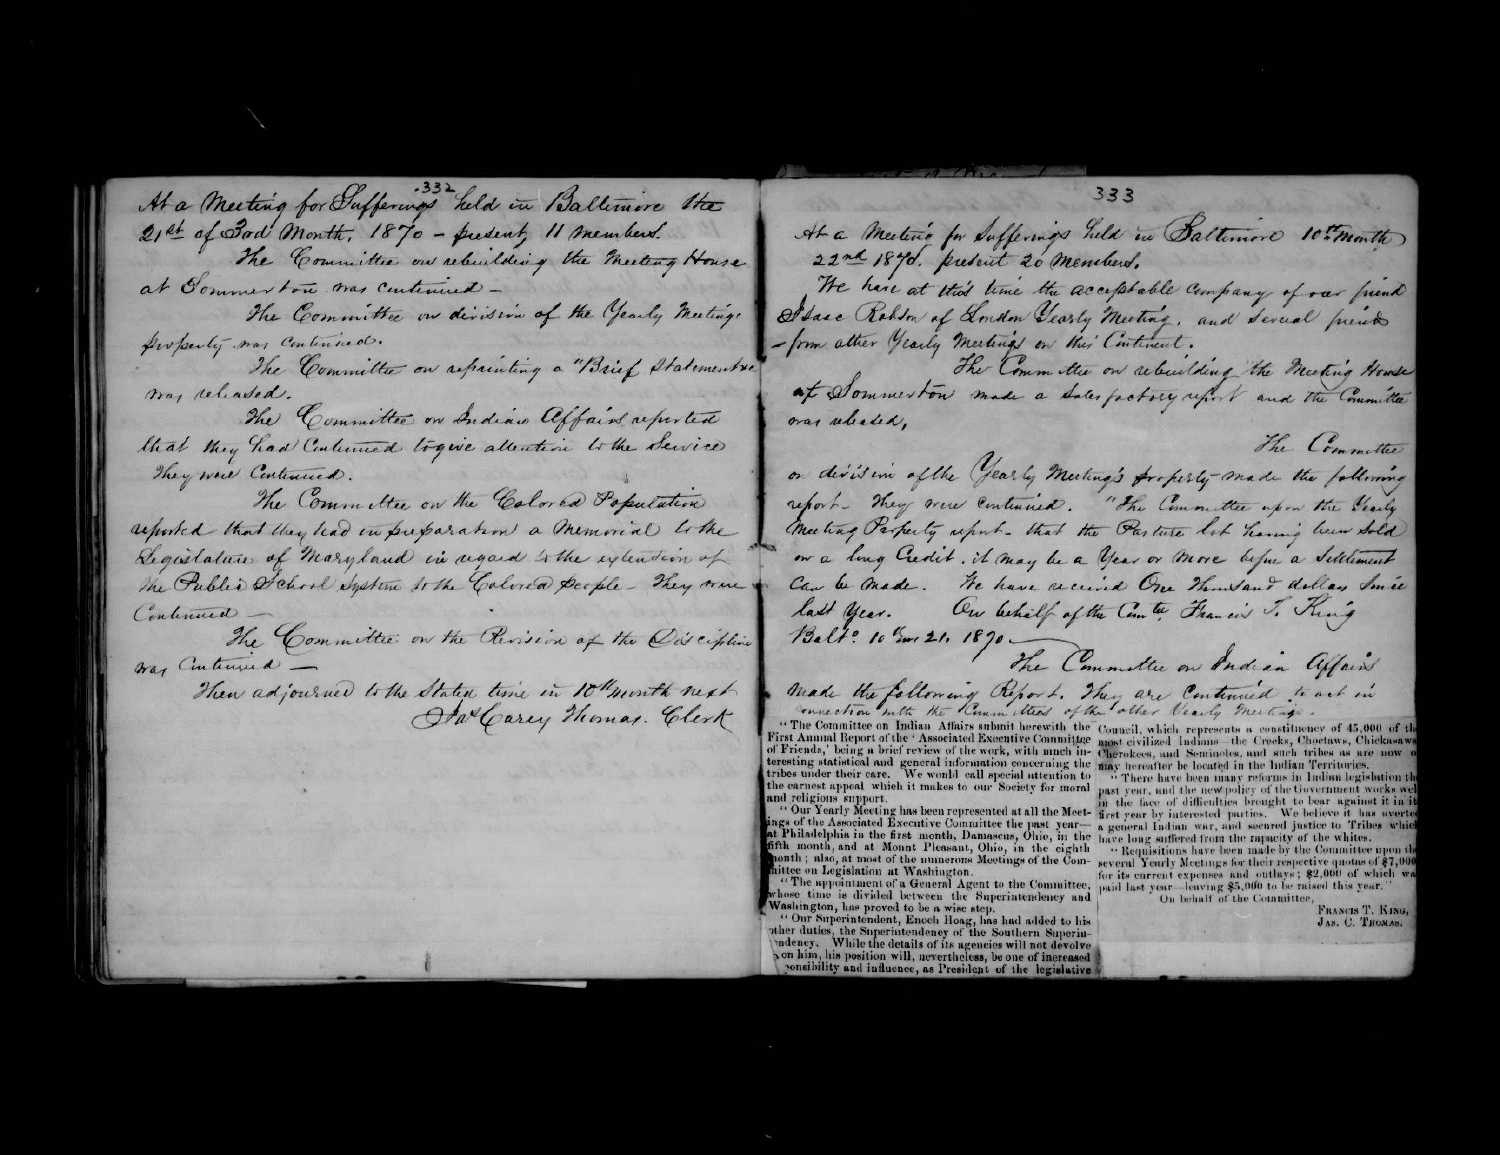 332
At a Meeting for Sufferings held in Baltimore the
21st of 3rd Month. 1870 - present, 11 members.
The Committee on rebuilding the Meeting House
at Somerton was continued -
The Committee on division of the Yearly Meetings
property was continued.
The Committee on reprinting a "Brief Statement &c
was released.
The Committee on Indian Affairs reported
that they had continued to give attention to the Service
They were continued.
The Committee on the Colored Population
reported that they had in preparation a Memorial to the
Legislature of Maryland in regard to the extension of
the Public School System to the Colored people - They were
Continued -
The Committee on the Revision of the Discipline
was continued -
Then adjourned to the stated time in 10th month next
Jas Carey Thomas. Clerk
333
At a Meeting for Sufferings held in Baltimore 10th Month
22nd 1870. present 20 members.
We have at this time the acceptable company of our friend
Isaac Robson of London Yearly Meeting, and several friends
- from other Yearly Meetings on this Continent.
The Committee on rebuilding the Meeting House
at Sommerton made a satisfactory report and the Committee
was released.
The Committee
on division of the Yearly Meeting's property made the following
report - They were continued. "The Committee upon the Yearly
Meeting Property report - that the Pasture lot having been sold
on a long Credit, it may be a Year or more before a Settlement
can be made. We have received One Thousand dollars since
last Year. On behalf of the Comtee, Francis T. King
Balto. 10 mo 21. 1870
The Committee on Indian Affairs
made the following Report. They are continued to act in
connection with the Committees of the other Yearly Meetings.
"The Committee on Indian Affairs submit herewith the
First Annual Report of the 'Associated Executive Committee
of Friends,' being a brief review of the work, with much in-
teresting statistical and general information concerning the
tribes under their care. We would call special attention to
the earnest appeal which it makes to our Society for moral
and religious support.
"Our Yearly Meeting has been represented at all the Meet-
ings of the Associated Executive Committee the past year—
at Philadelphia in the first month, Damascus, Ohio, in the
fifth month, and at Mount Pleasant, Ohio, in the eighth
month; also, at most of the numerous Meetings of the Com-
mittee on Legislation at Washington.
"The appointment of a General Agent to the Committee,
whose time is divided between the Superintendency and
Washington, has proved to be a wise step.
"Our Superintendent, Enoch Hoag, has had added to his
other duties, the Superintendency of the Southern Superin-
ndency. While the details of its agencies will not devolve
on him, his position will, nevertheless, be one of increased
ponsibility and influence, as President of the legislative
Council, which represents a constituency of 45,000 of th
most civilized Indians—the Creeks, Choctaws, Chickasaws
Cherokees, and Seminoles, and such tribes as are now o
may hereafter be located in the Indian Territories.
"There have been many reforms in Indian legislation th
past year, and the new policy of the Government works wel
in the face of difficulties brought to bear against it in it
first year by interested parties. We believe it has averte
a general Indian war, and secured justice to Tribes which
have long suffered from the rapacity of the whites.
"Requisitions have been made by the Committee upon th
several Yearly Meetings for their respective quotas of $7,000
for its current expenses and outlays; $2,000 of which wa
paid last year—leaving $5,000 to be raised this year."
On behalf of the Committee,
FRANCIS T. KING,
JAS. C. THOMAS.